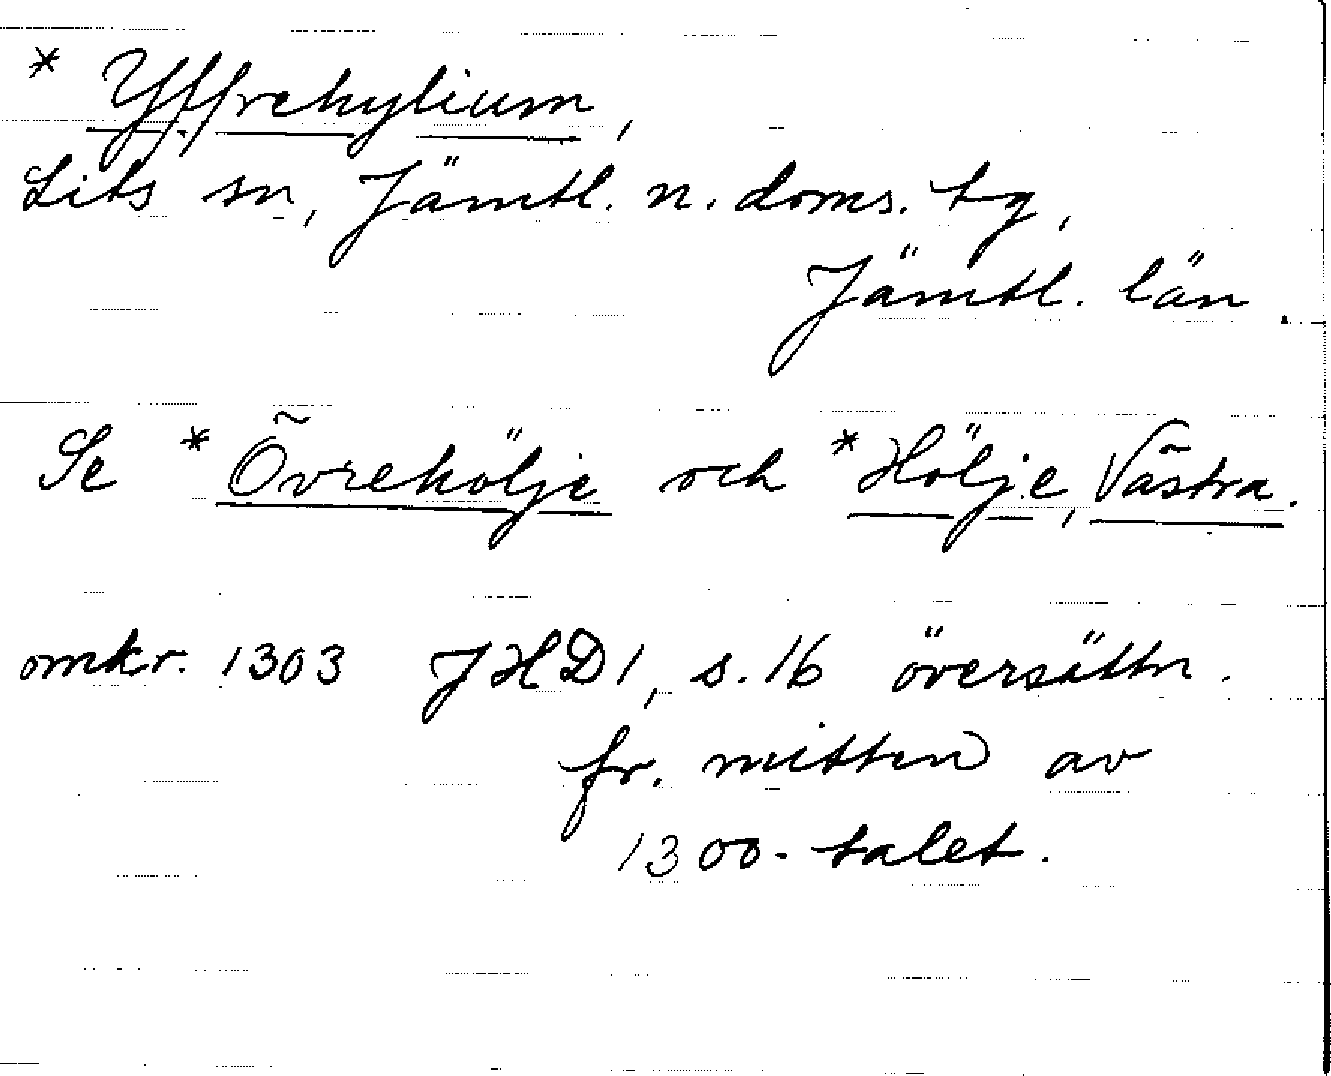 * Yffrehylium,
Lits sn, Jämtl. n. doms. tg,
Jämtl. län.
Se *Övrehölje och *Hölje, Västra.
omkr. 1303 JHD 1, s. 16 översättn.
fr. mitten av
1300-talet.